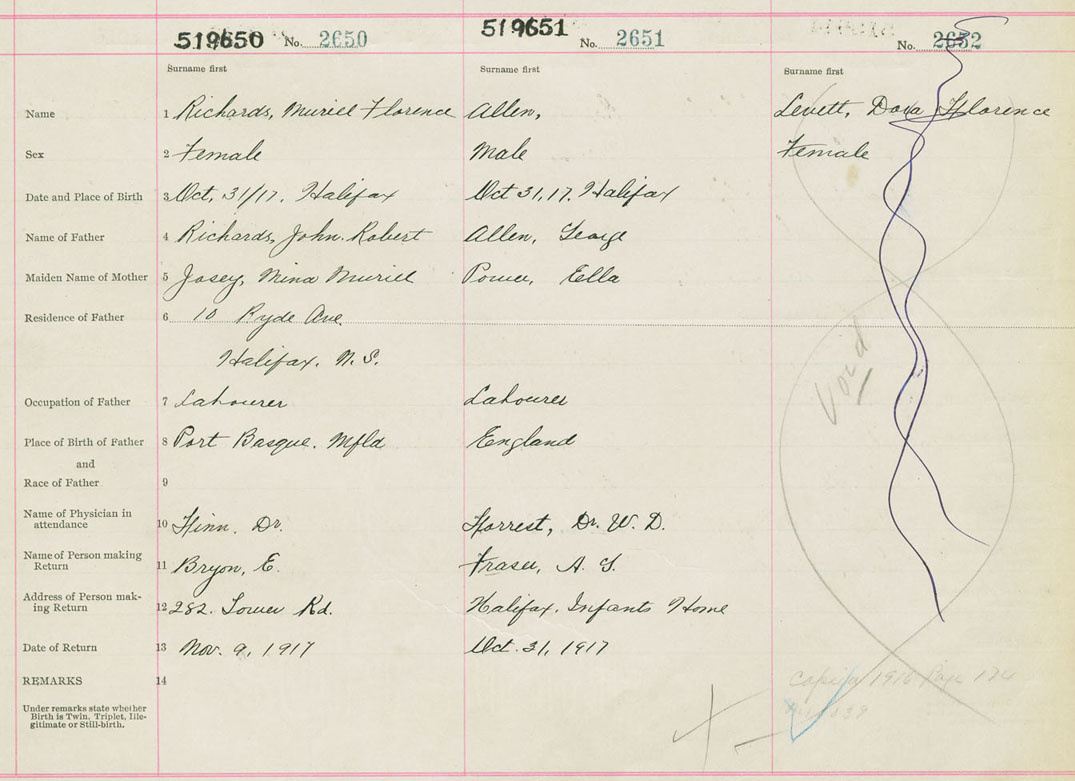 519650 No. 2650
519651 No. 2651
No. 2652
Surname first Surname first Surname first
Name 1 Richards, Muriel Florence Allen, Levett, Dova Florence
Sex 2 Female Male Female
Date and Place of Birth 3 Oct, 31/17, Halifax Oct 31, 17, Halifax
Name of Father 4 Richards, John Robert Allen, George
Maiden Name of Mother 5 Josey, Mina Muriel Power, Ella
Residence of Father 6 10 Ryde Ave.
Halifax, N. S.
Void
Occupation of Father 7 Labourer Labourer
Place of Birth of Father 8 Port Basque. Nfld England
and
Race of Father 9
Name of Physician in
attendance 10 Finn, Dr. Forrest, Dr. W. D.
Name of Person making
Return 11 Bryon, E. Fraser, A. G.
Address of Person mak-
ing Return 12 282. Tower Rd. Halifax, Infants Home
Date of Return 13 Nov. 9, 1917 Oct. 31, 1917
REMARKS 14
1918 Page 174
Under remarks state whether
Birth is Twin, Triplet, Ille-
gitimate or Still-birth.